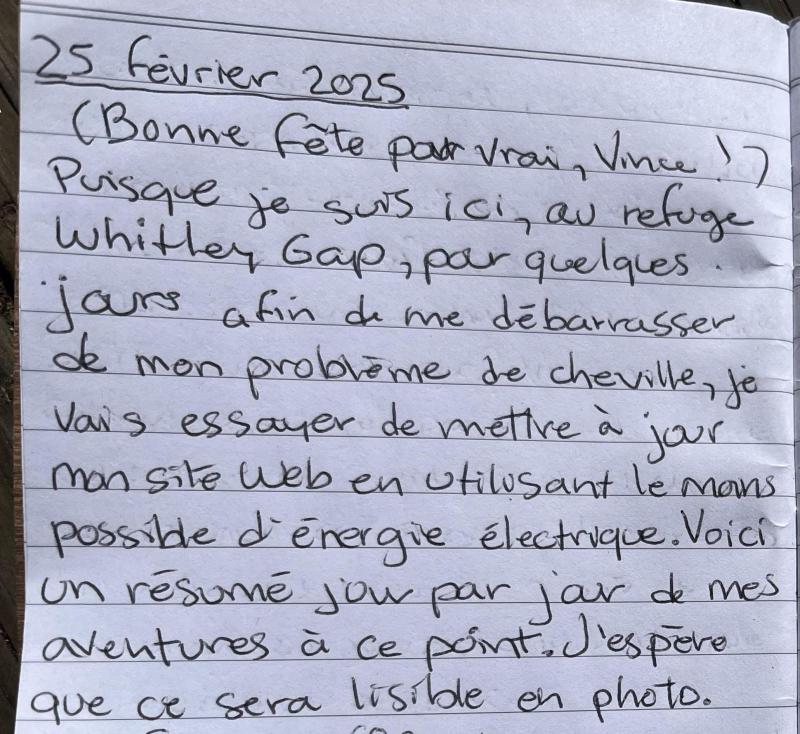 25 février 2025
(Bonne fête pour vrai, Vince !)
Puisque je suis ici, au refuge
Whitley Gap, pour quelques
jours afin de me débarrasser
de mon problème de cheville, je
vais essayer de mettre à jour
mon site Web en utilisant le moins
possible d'énergie électrique. Voici
un résumé jour par jour de mes
aventures à ce point. J'espère
que ce sera lisible en photo.